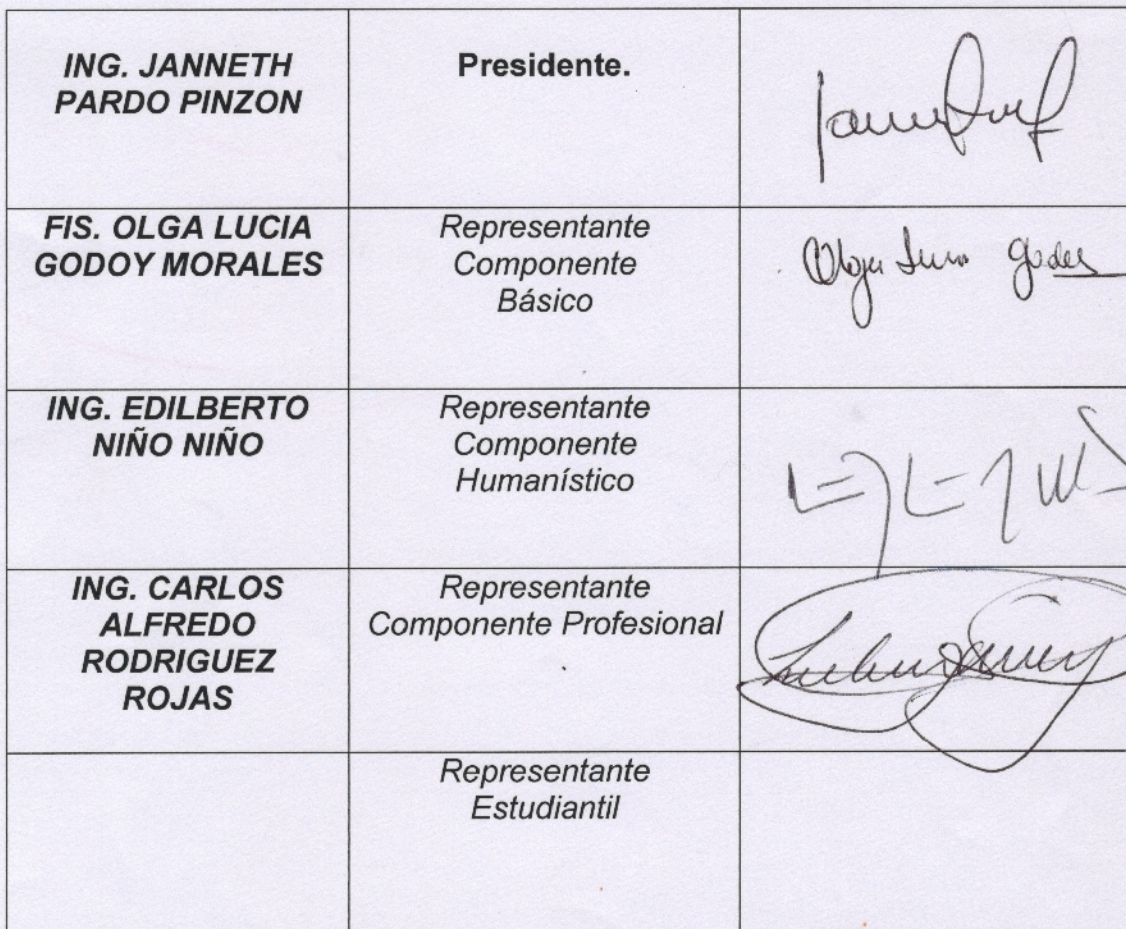 ING. JANNETH
PARDO PINZON
Presidente.
FIS. OLGA LUCIA
GODOY MORALES
Representante
Componente
Básico
Olga Lucia Godoy
ING. EDILBERTO
NIÑO NIÑO
Representante
Componente
Humanístico
ING. CARLOS
ALFREDO
RODRIGUEZ
ROJAS
Representante
Componente Profesional
Representante
Estudiantil